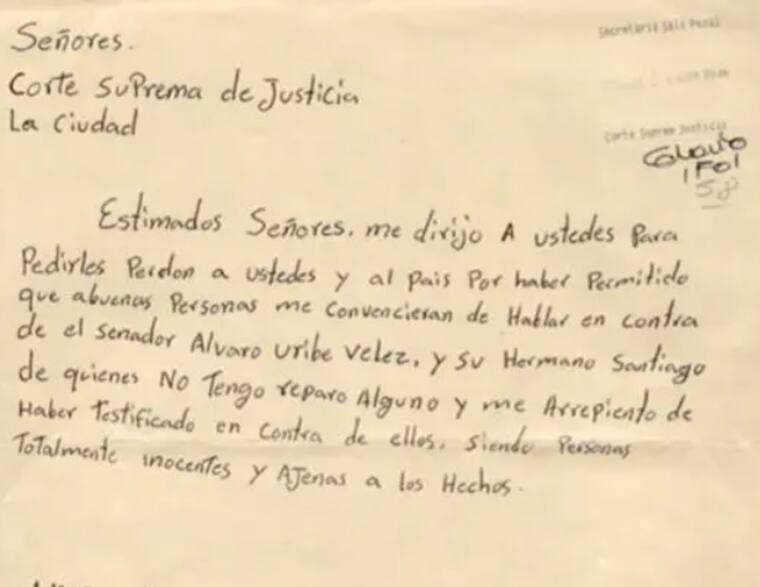 Secretaria Sala Penal
Corte Suprema Justicia
1 Fol
Señores.
Corte SuPrema de Justicia
La Ciudad
Estimados Señores. me dirijo A ustedes Para
Pedirles Perdon a ustedes y al Pais Por haber Permitido
que abuenas Personas me Convencieran de Hablar en Contra
de el Senador Alvaro Uribe Velez, y Su Hermano Santiago
de quienes NO Tengo reparo Alguno y me Arrepiento de
Haber Testificado en Contra de ellos, siendo Personas
Totalmente inocentes y AJenas a los Hechos.